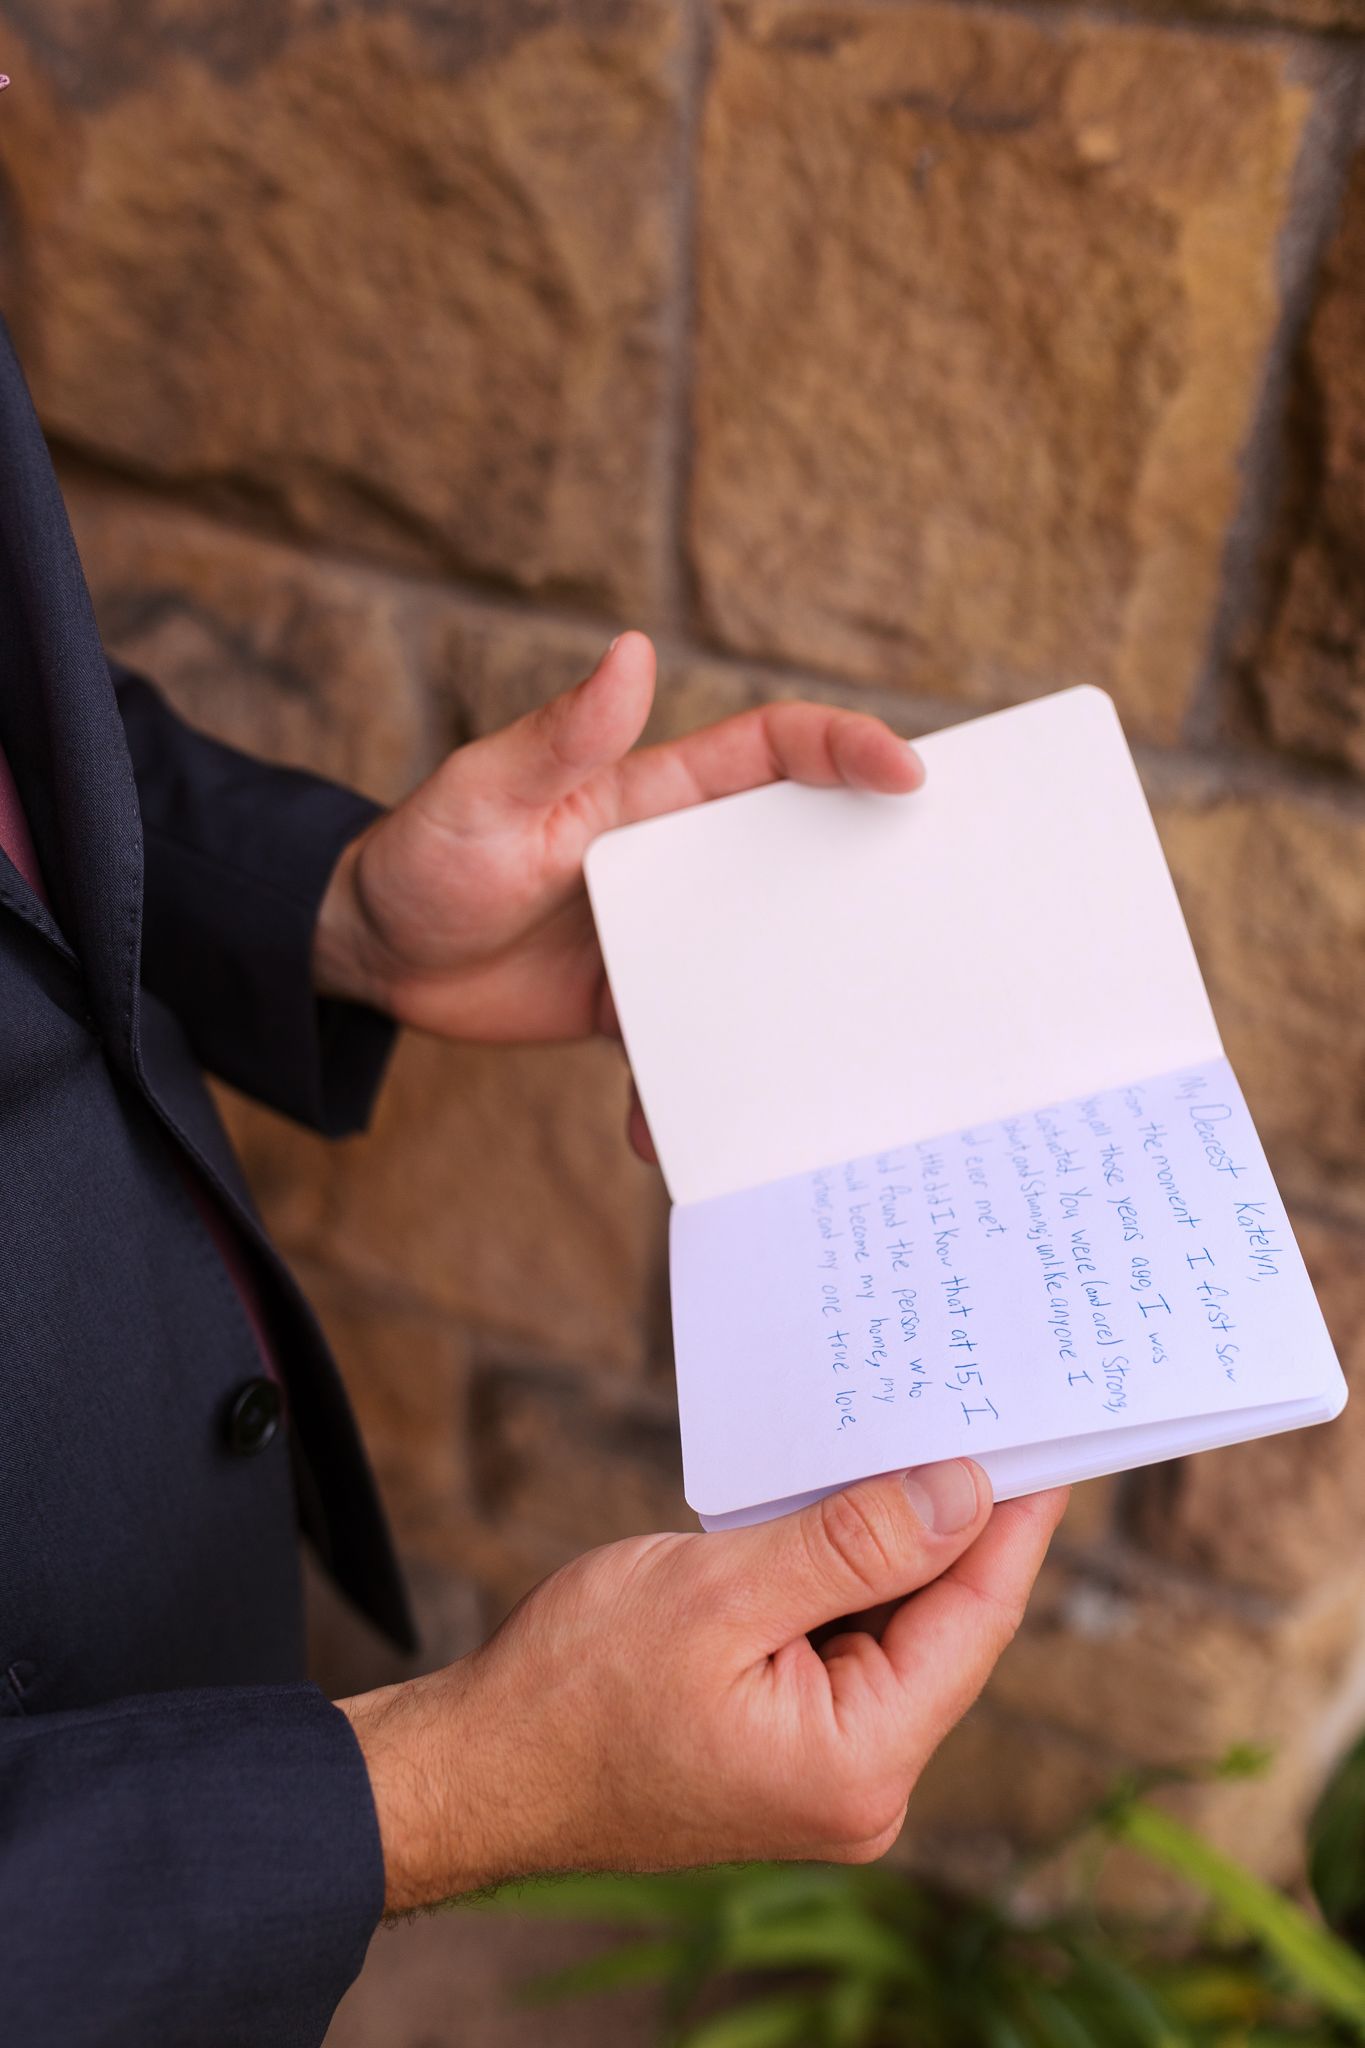 My Dearest Katelyn,
From the moment I first saw
you all those years ago, I was
Captivated. You were (and are) Strong,
and Stunning; unlike anyone I
had ever met.
Little did I know that at 15, I
had found the person who
would become my home, my
partner, and my one true love.